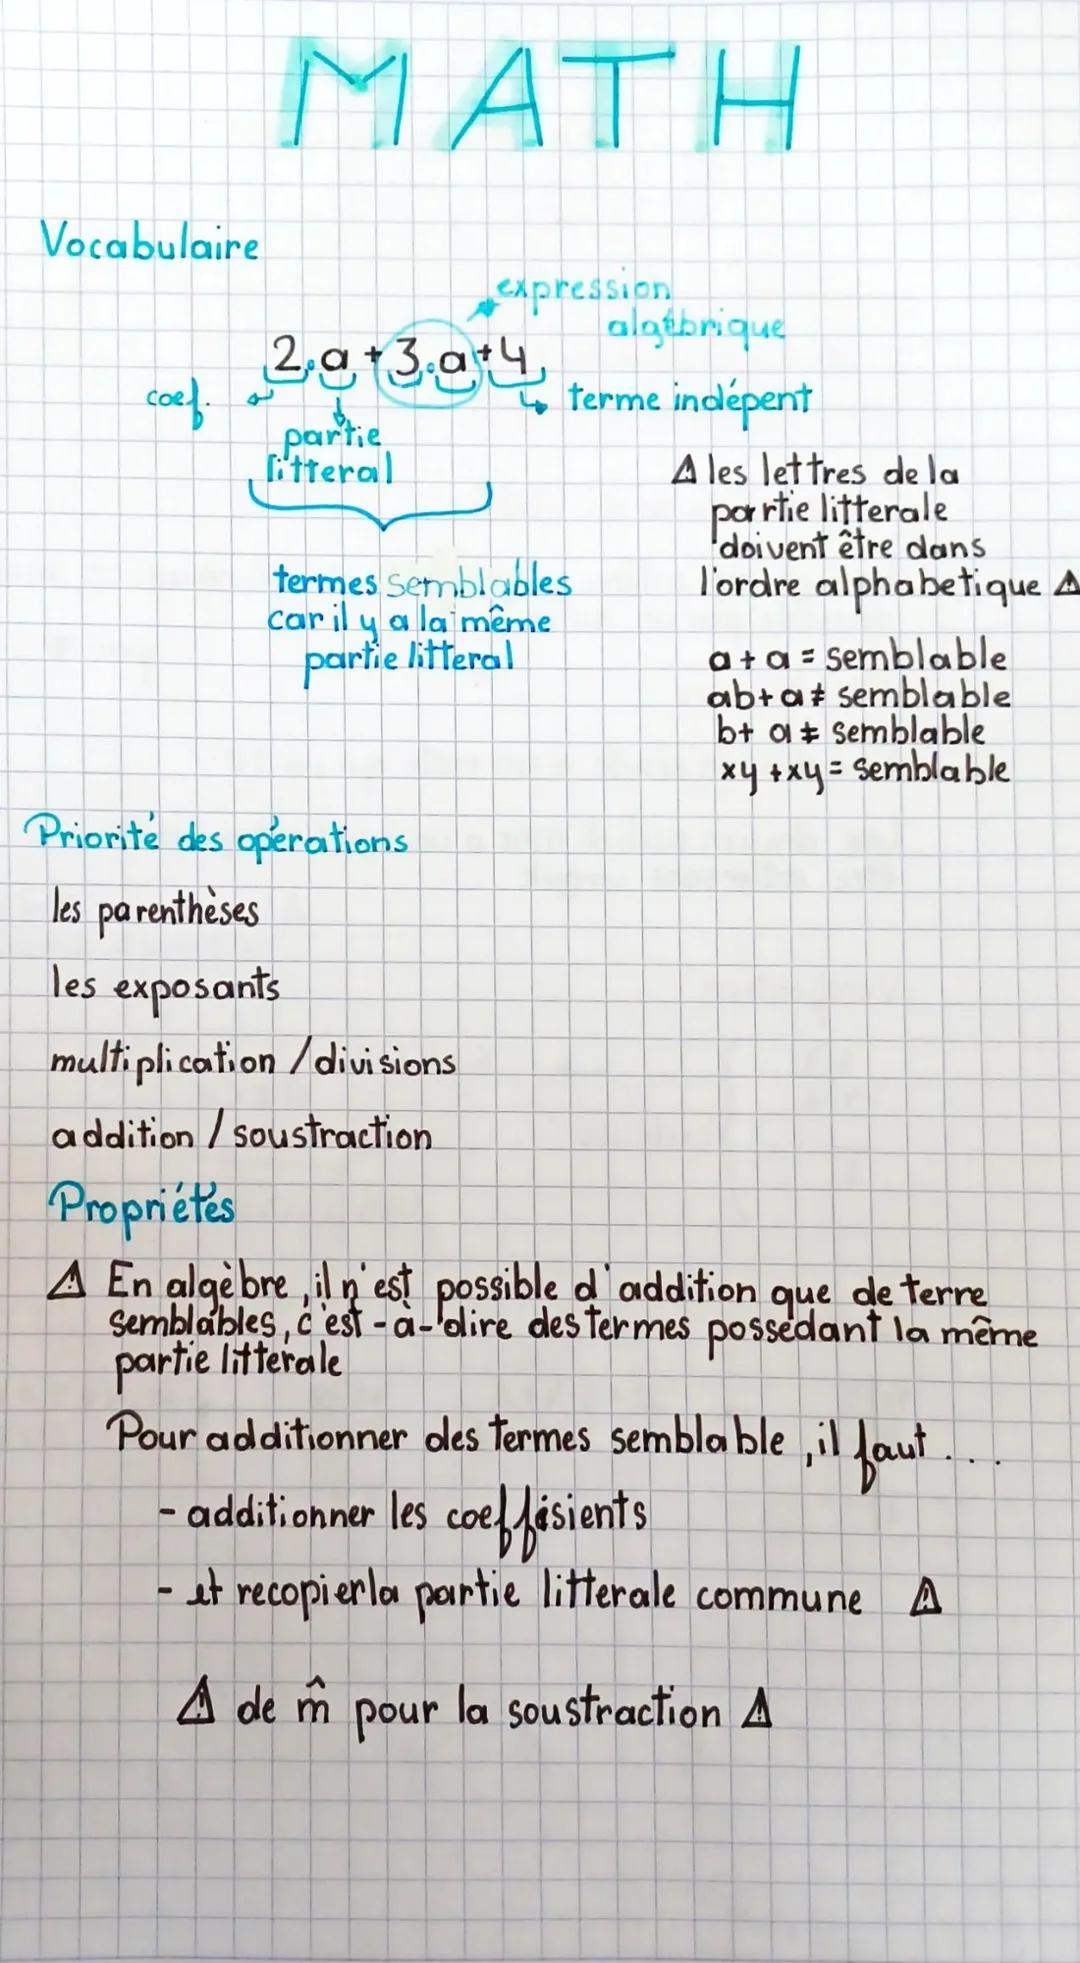 MATH
Vocabulaire
expression
algébrique
2.a+3.a+4
coef.
terme indépent
partie
litteral
⚠ les lettres de la
partie litterale
doivent être dans
l'ordre alphabetique ⚠
termes semblables
car il y a la même
partie litteral
a + a = semblable
ab+a ≠ semblable
b+ a ≠ semblable
xy +xy = semblable
Priorité des opérations
les parenthèses
les exposants
multiplication / divisions
addition / soustraction
Propriétés
⚠ En algèbre, il n'est possible d'addition que de terre
semblables, c'est-à-dire des termes possedant la même
partie litterale
Pour additionner des termes semblable, il faut ...
- additionner les coeffisients
- et recopier la partie litterale commune ⚠
⚠ de m̂ pour la soustraction ⚠